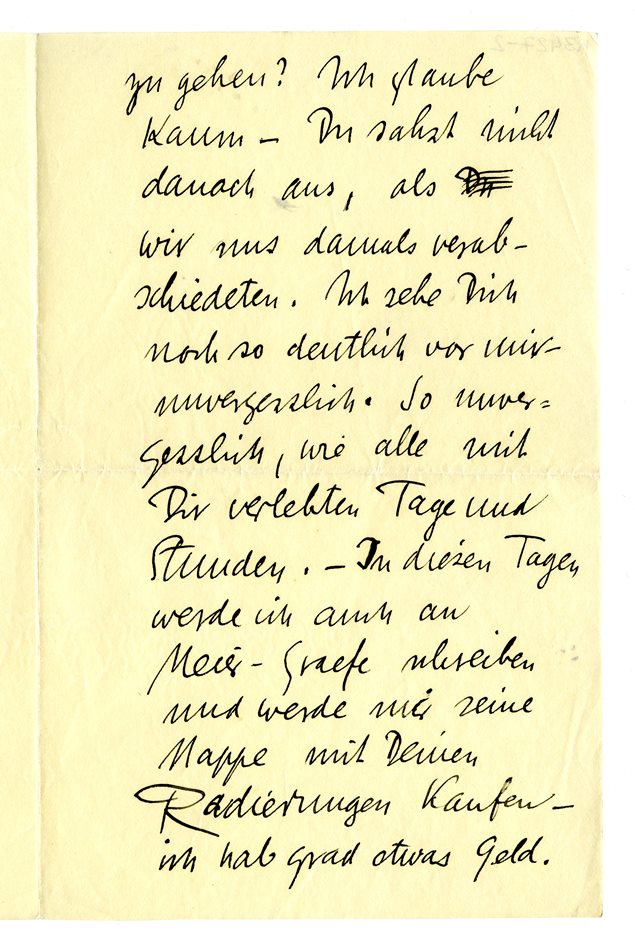 zu gehen? Ich glaube
kaum – Du sahst nicht
danach aus, als Du
wir uns damals verab-
schiedeten. Ich sehe Dich
noch so deutlich vor mir –
unvergesslich. So unver=
gesslich, wie alle mit
Dir verlebten Tage und
Stunden. – In diesen Tagen
werde ich auch an
Meier-Graefe schreiben
und werde mir seine
Mappe mit Deinen
Radierungen kaufen –
ich hab grad etwas Geld.